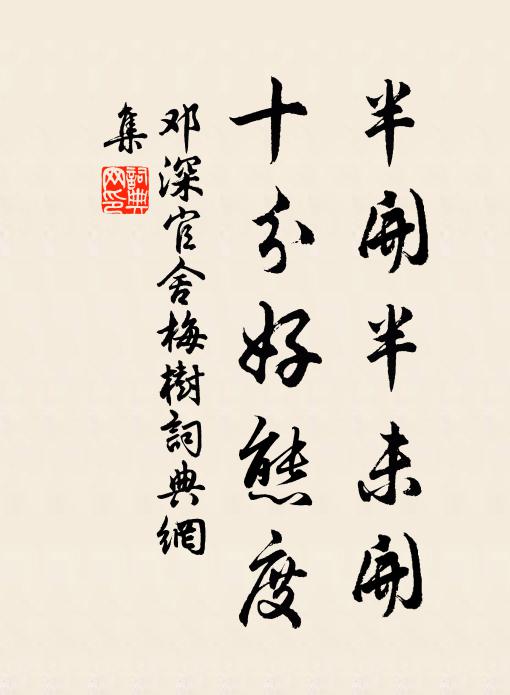 半開半未開
十分好態度
邓深官舍梅樹詞典網
集
詞典
网印